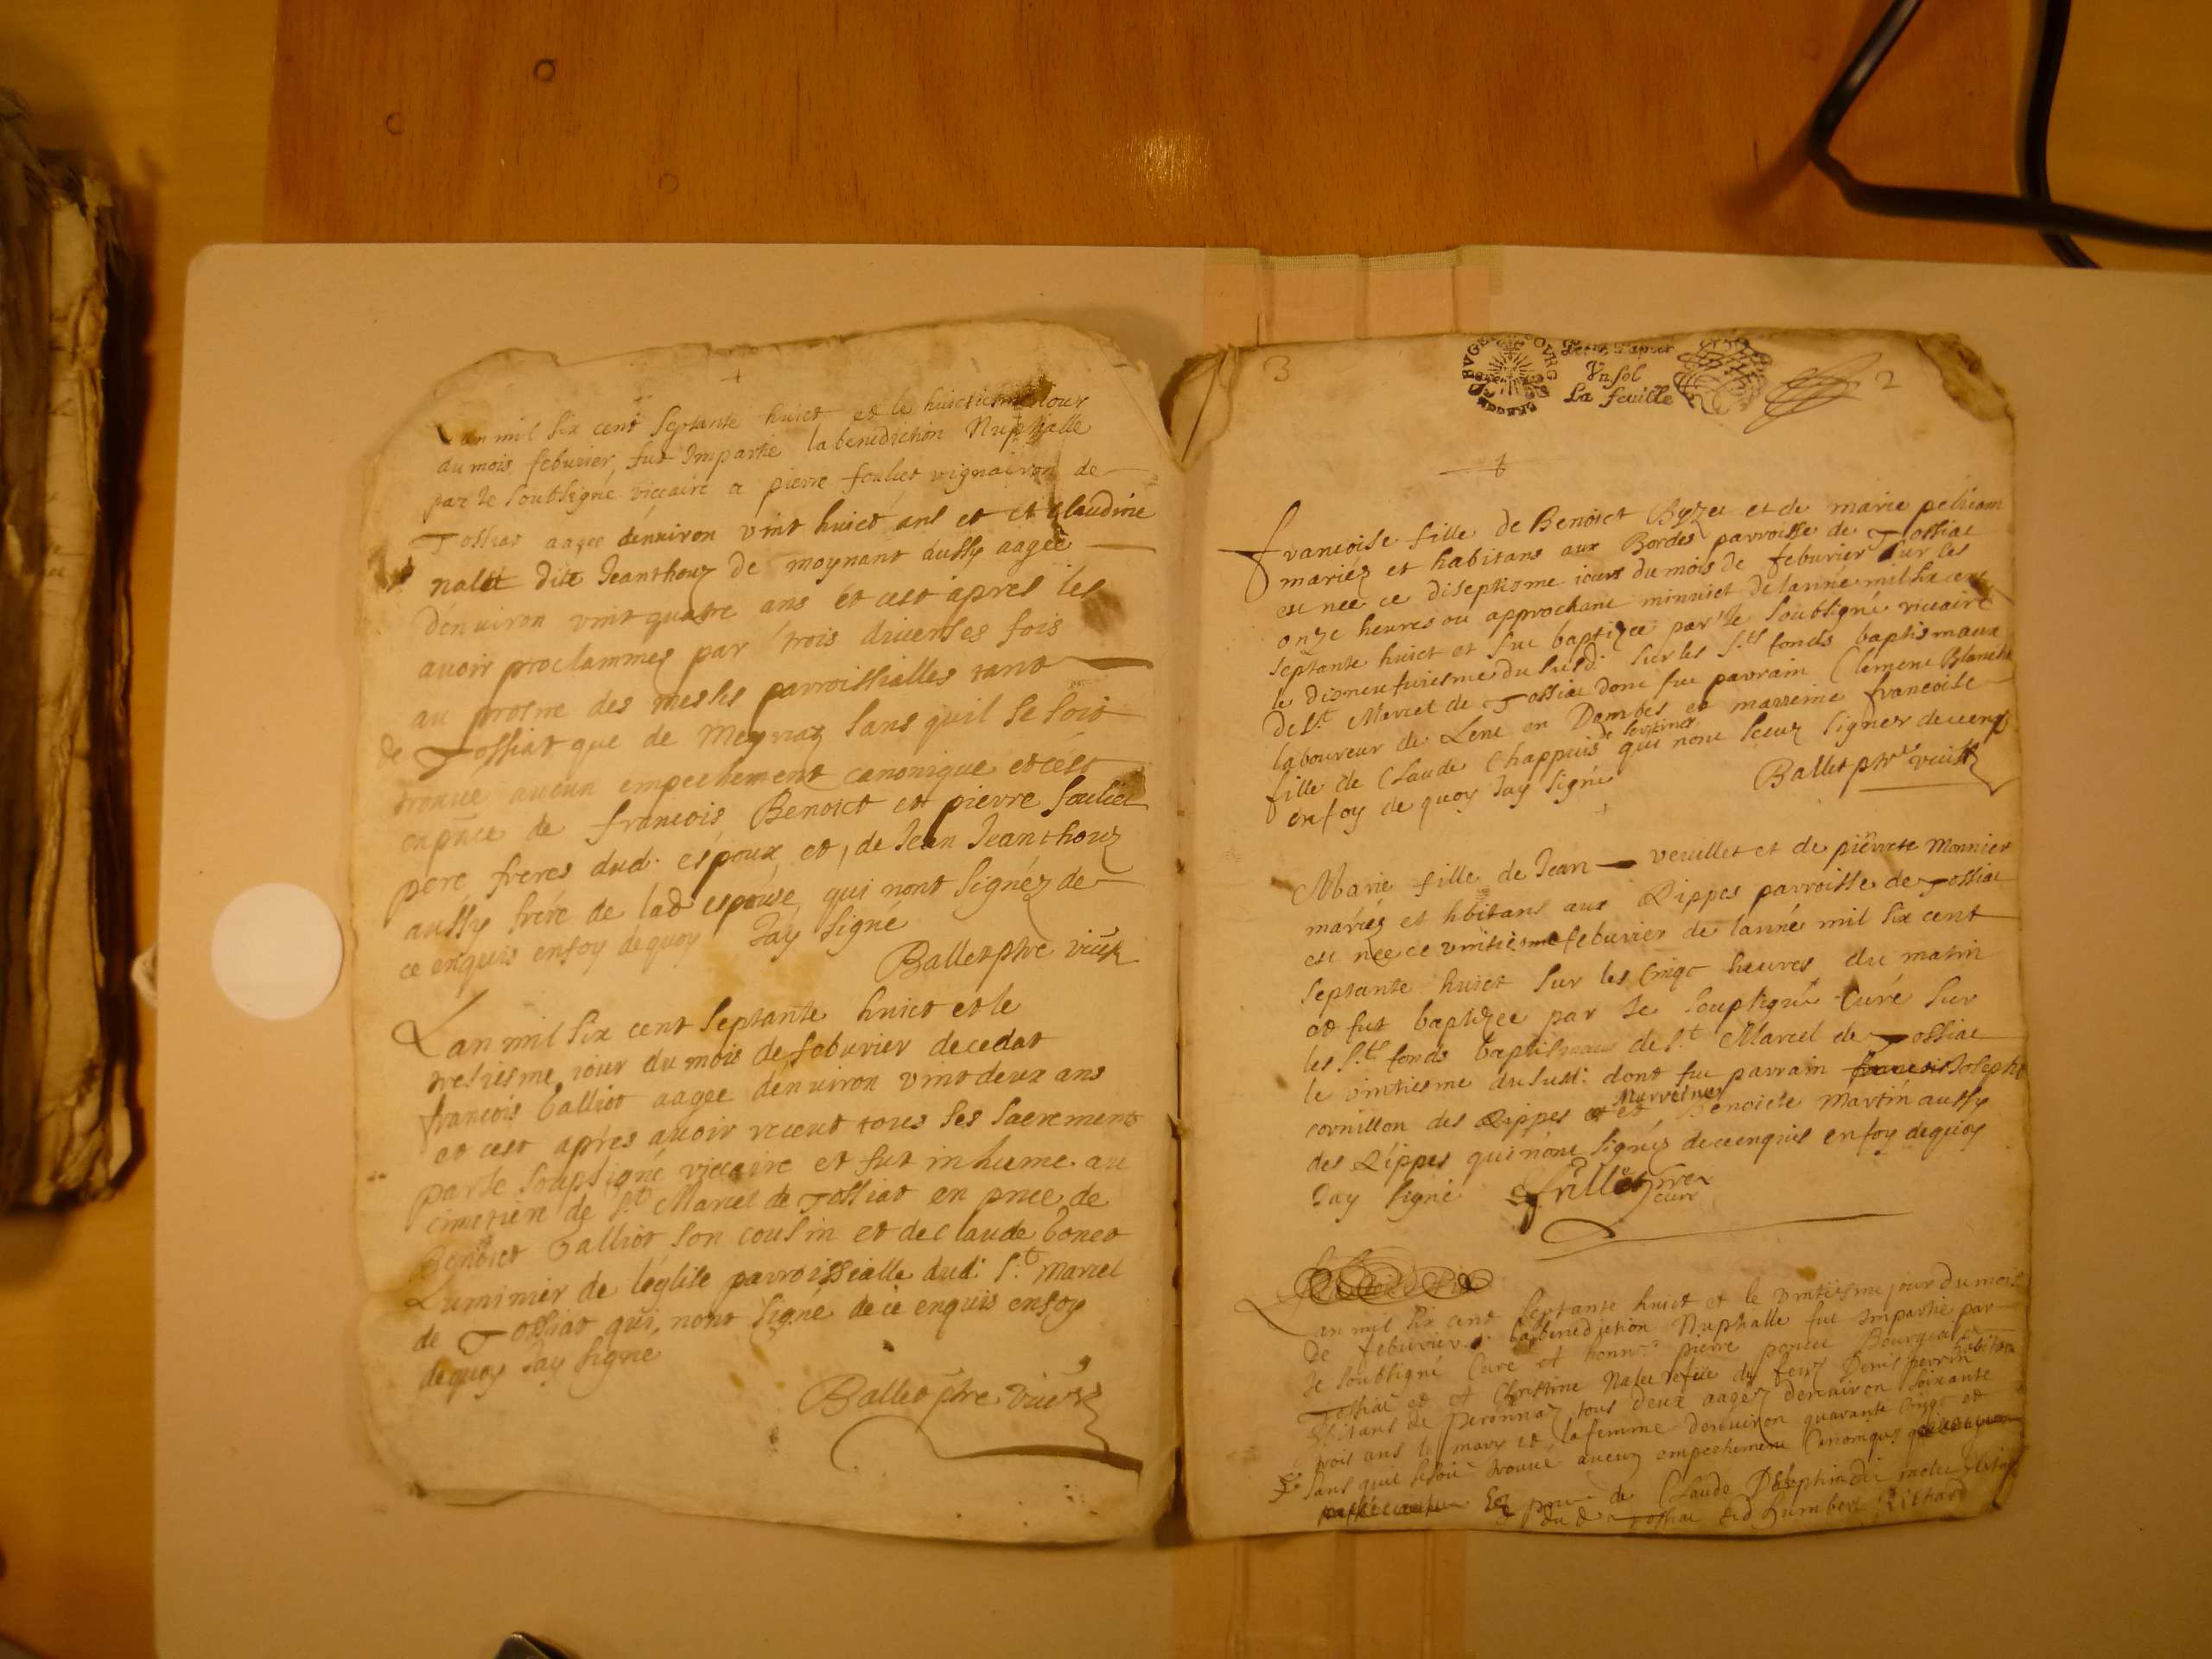 Lan mil six cent septante huict et le huictiesme iour
du mois febvrier fut Impartie la benediction Nuptialle
par Ie soubsigné viccaire a pierre fouliet vignairon de
Tossiat aagee dénviron vint huict ans et et claudine
nalét dite Jeanthouz de moynant aussy aagée
dénviron vint quatre ans et cest apres les
avoir proclammez par trois diverses fois
au prosne des messes parroissialles tant
de Tossiat que de Meynaz sans quil se soit
trouvé aucun empechement canonique et cést
en pnce de francois Benoict et pierre fouliet
pere freres dud. espoux et, de Jean Jeanthouz
aussy frére de lad espouse qui nont signéz de
ce enquis en foy de quoy Jay signé
Ballet ptre viccr
Lan mil six cent septante huict et le
tresiesme iour du mois de febvrier decedat
françois Galliot aagee dénviron vint deux ans
et cest aprés avoir receut tous ses sacrements
par Ie soupsigné viccaire et fut inhume au
cimetiere de St Marcel de Tossiat en pnce de
Benoict Galliot son cousin et de claude bonet
Luminier de léglise parroissialle dud. S.t Marcel
de Tossiat qui nont signé de ce enquis en foy
de quoy Jay signé
Ballet ptre viccr
3
Petit Papier
Un sol
La feuille
2
francoise fille de Benoict Byzet et de marie pelicam
mariéz et habitans aux Bordes parroisse de Tossiat
est nee ce diseptisme iours du mois de febvrier sur les
onze heures ou approchant minuict de lanné mil six cent
septante huict et fut baptizee par Ie soubsigné viccaire
le disneufviesme du susd. sur les S.ts fonds baptismaux
de S.t Marcel de Tossiat dont fut parrain Clement Blanchet
laboureur de Lent en Dombes et marreine francoise
fille de Claude Chappuis qui nont sceuz signer de ce enq.
en foy de quoy Jay signé
Ballet ptre viccr
Marie fille de Jean veuillet et de pierrete Monnier
mariéz et hbitans aux Rippes parroisse de Tossiat
est née ce vintiesme febvrier de lanné mil six cent
septante huict sur les cinqt heures du matin
et fut baptizee par Ie soupsigné Curé sur
les S.ts fonds baptismaux de S.t Marcel de Tossiat
le vintiesme du susd. dont fut parrain francois Joseph
cornillon des Rippes et et Marreine Benoicte Martin aussy
des Rippes qui nont signéz de ce enquis en foy de quoy
Jay signé
frillet
curé
Lan mil six cent septante huict et le vintiesme jour du mois
de febvrier la benediction Nuptialle fut Impartie par
Ie soubsigné Curé et honn.e pierre Bourgeat
Tossiat et et Christine Nalet refaite du feu Denis perrin habitans
hbitans de peronnaz tous deux aagez denviron soixante
trois ans le mary et la femme denviron quarante cinqt et
sans quil se soit trouvé aucun empechement Canonique
de Claude
du d Tossiat et d humbert Richard